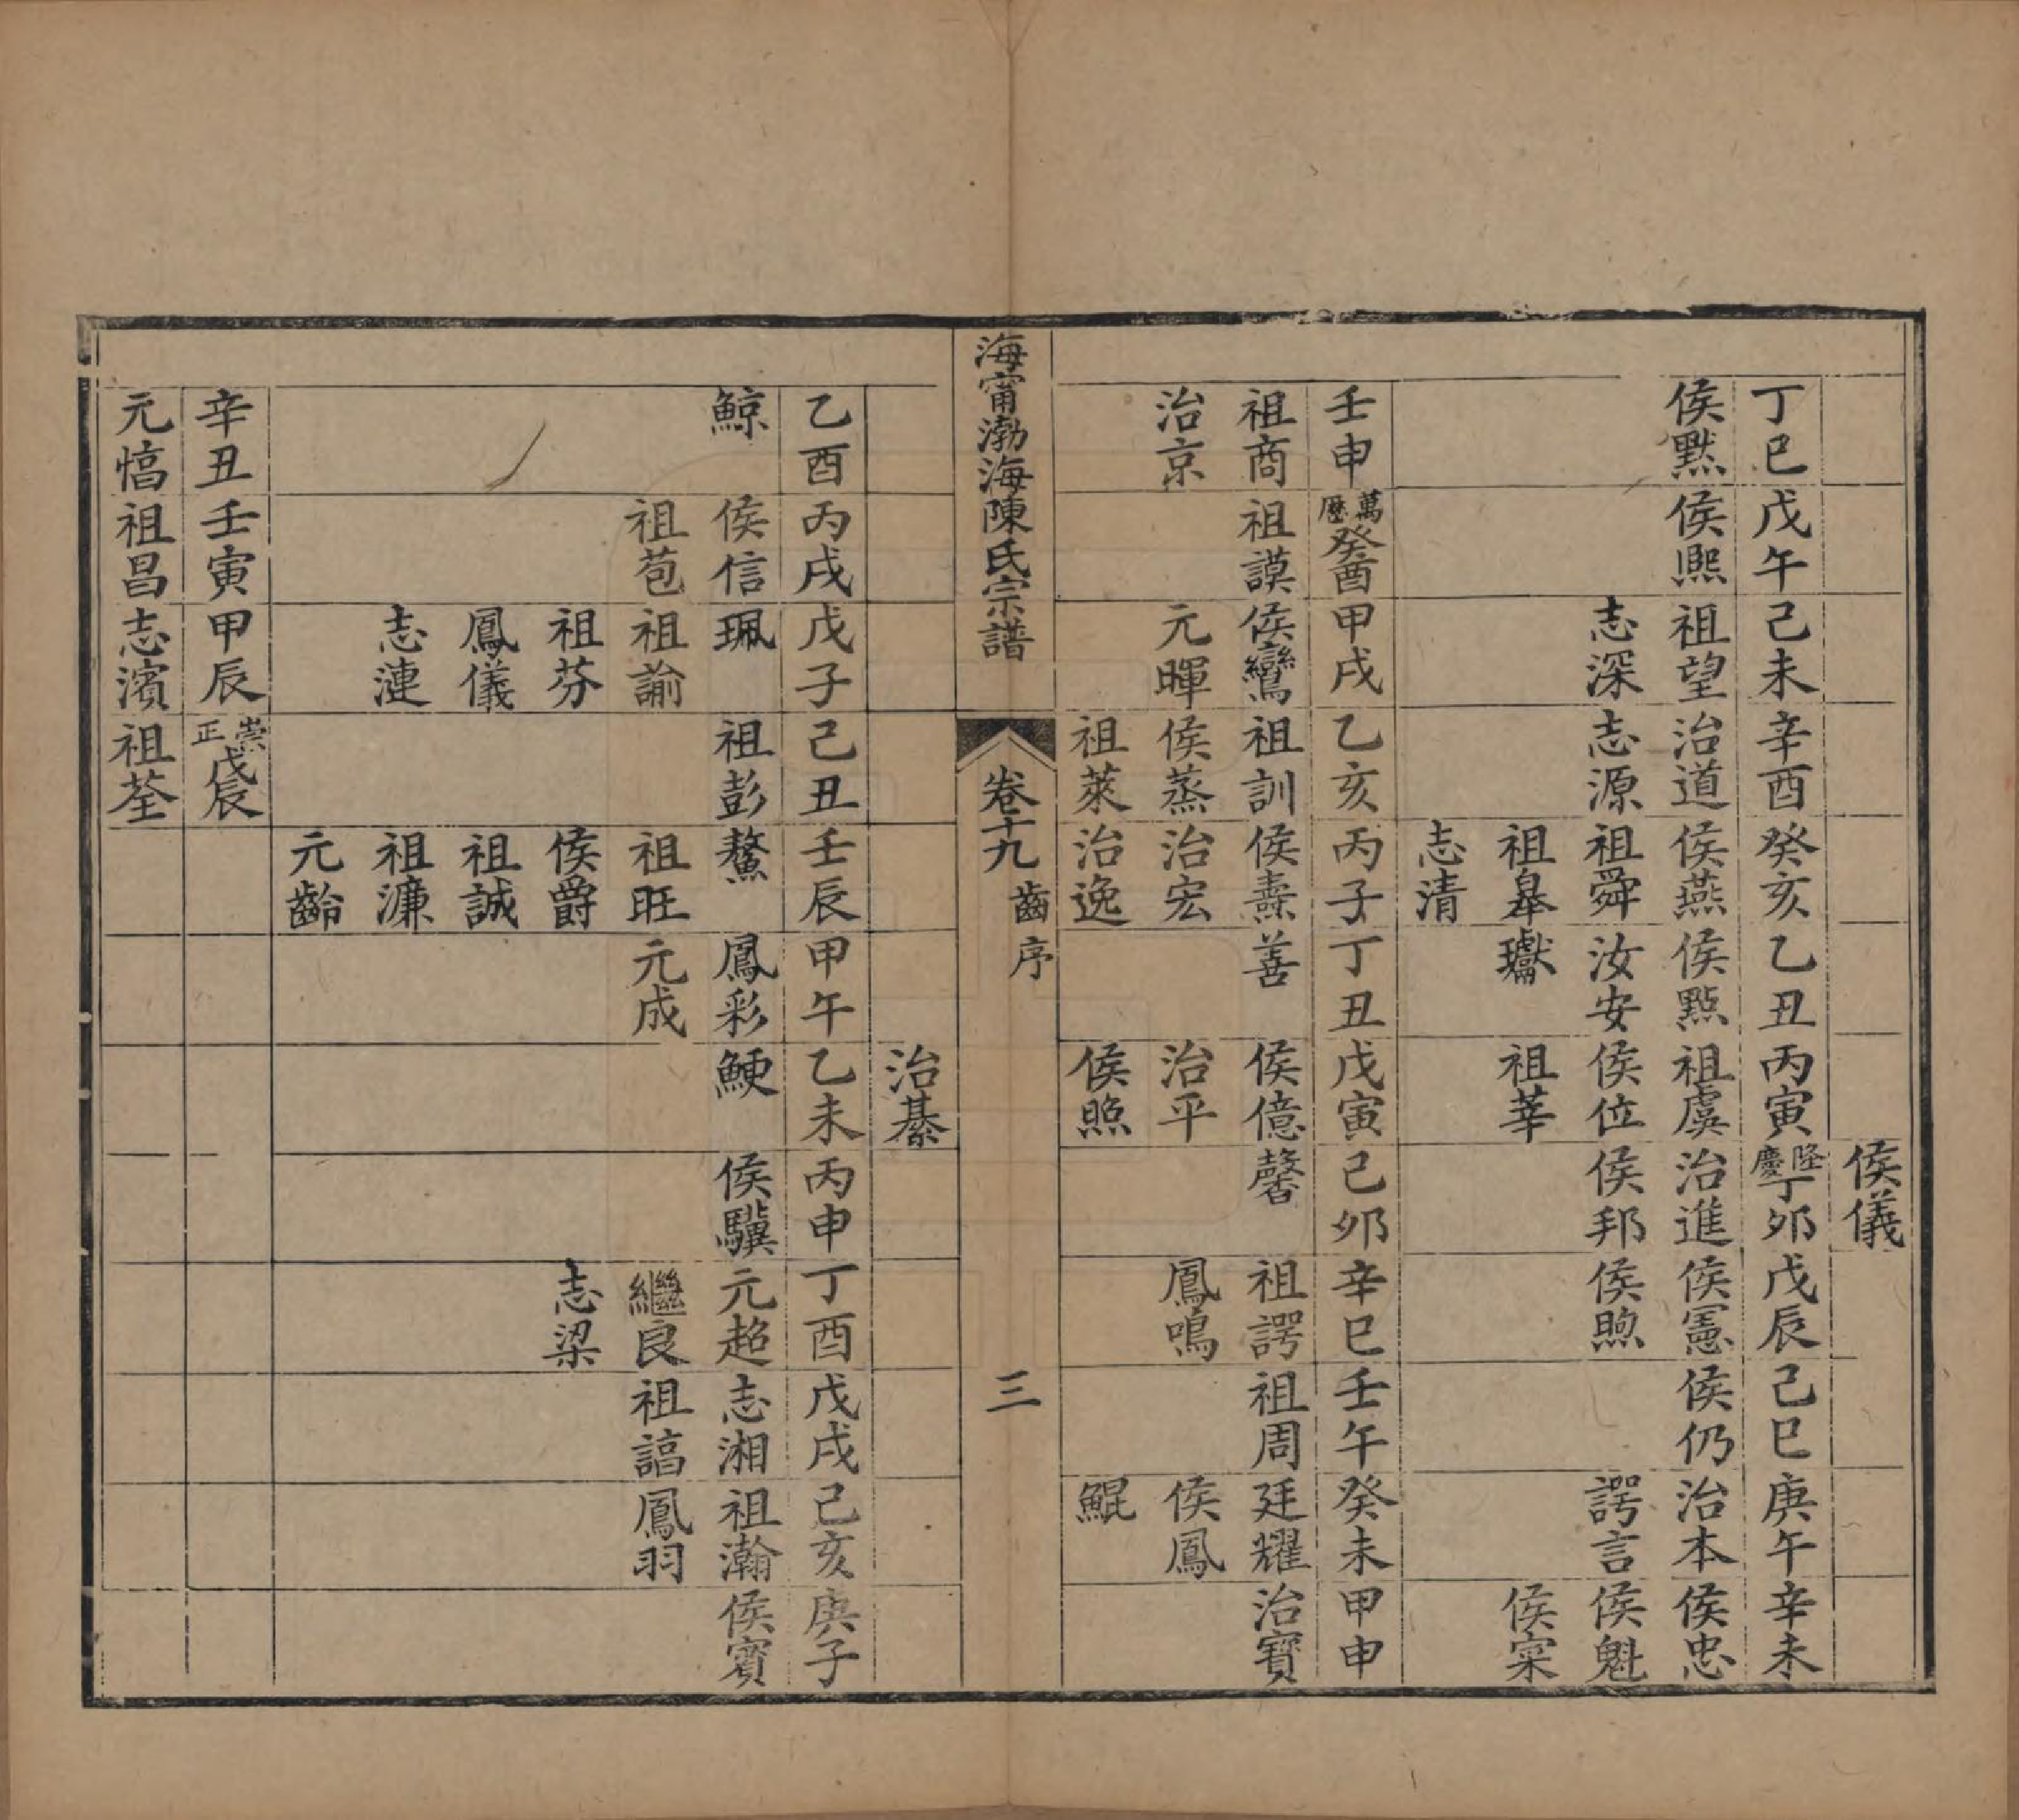 侯儀
丁巳 戊午 己未 辛酉 癸亥 乙丑 丙寅 隆慶丁卯 戊辰 己巳 庚午 辛未
侯黙 侯熙 祖望 治道 侯燕 侯點 祖虞 治進 侯憲 侯仍 治本 侯忠
志深 志源 祖舜 汝安 侯位 侯邦 侯煦 諤言 侯魁
祖皋 瓛 祖莘 侯寀
志清
壬申 萬曆癸酉 甲戌 乙亥 丙子 丁丑 戊寅 己卯 辛巳 壬午 癸未 甲申
祖商 祖謨 侯鸞 祖訓 侯燾 善 侯億 馨 祖諤 祖周 廷耀 治寶
治京 元暉 侯蒸 治宏 治平 鳳鳴 侯鳳
祖萊 治逸 侯煦 鯤
海甯渤海陳氏宗譜 卷十九 齒序 三
治綦
乙酉 丙戌 戊子 己丑 壬辰 甲午 乙未 丙申 丁酉 戊戌 己亥 庚子
鯨 侯信 珮 祖彭 鰲 鳳彩 鯁 侯驥 元超 志湘 祖瀚 侯賓
祖苞 祖諭 祖旺 元成 繼良 祖諨 鳳羽
祖芬 侯爵 志梁
鳳儀 祖誠
志漣 祖濂
元齡
辛丑 壬寅 甲辰 崇正戊辰
元愊 祖昌 志濱 祖荃